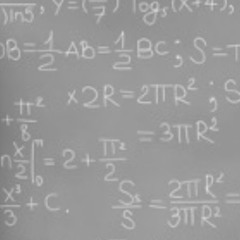 )ln5', y=(π/7) log₅(x+4),
OB=1/2 AB=1/2 BC; S=π
x2R=2πR²; S
+π²/8
=3πR²
n x/2|₀^π=2+π²/2
x³/3+C. S₅/S=2πR²/3πR²=